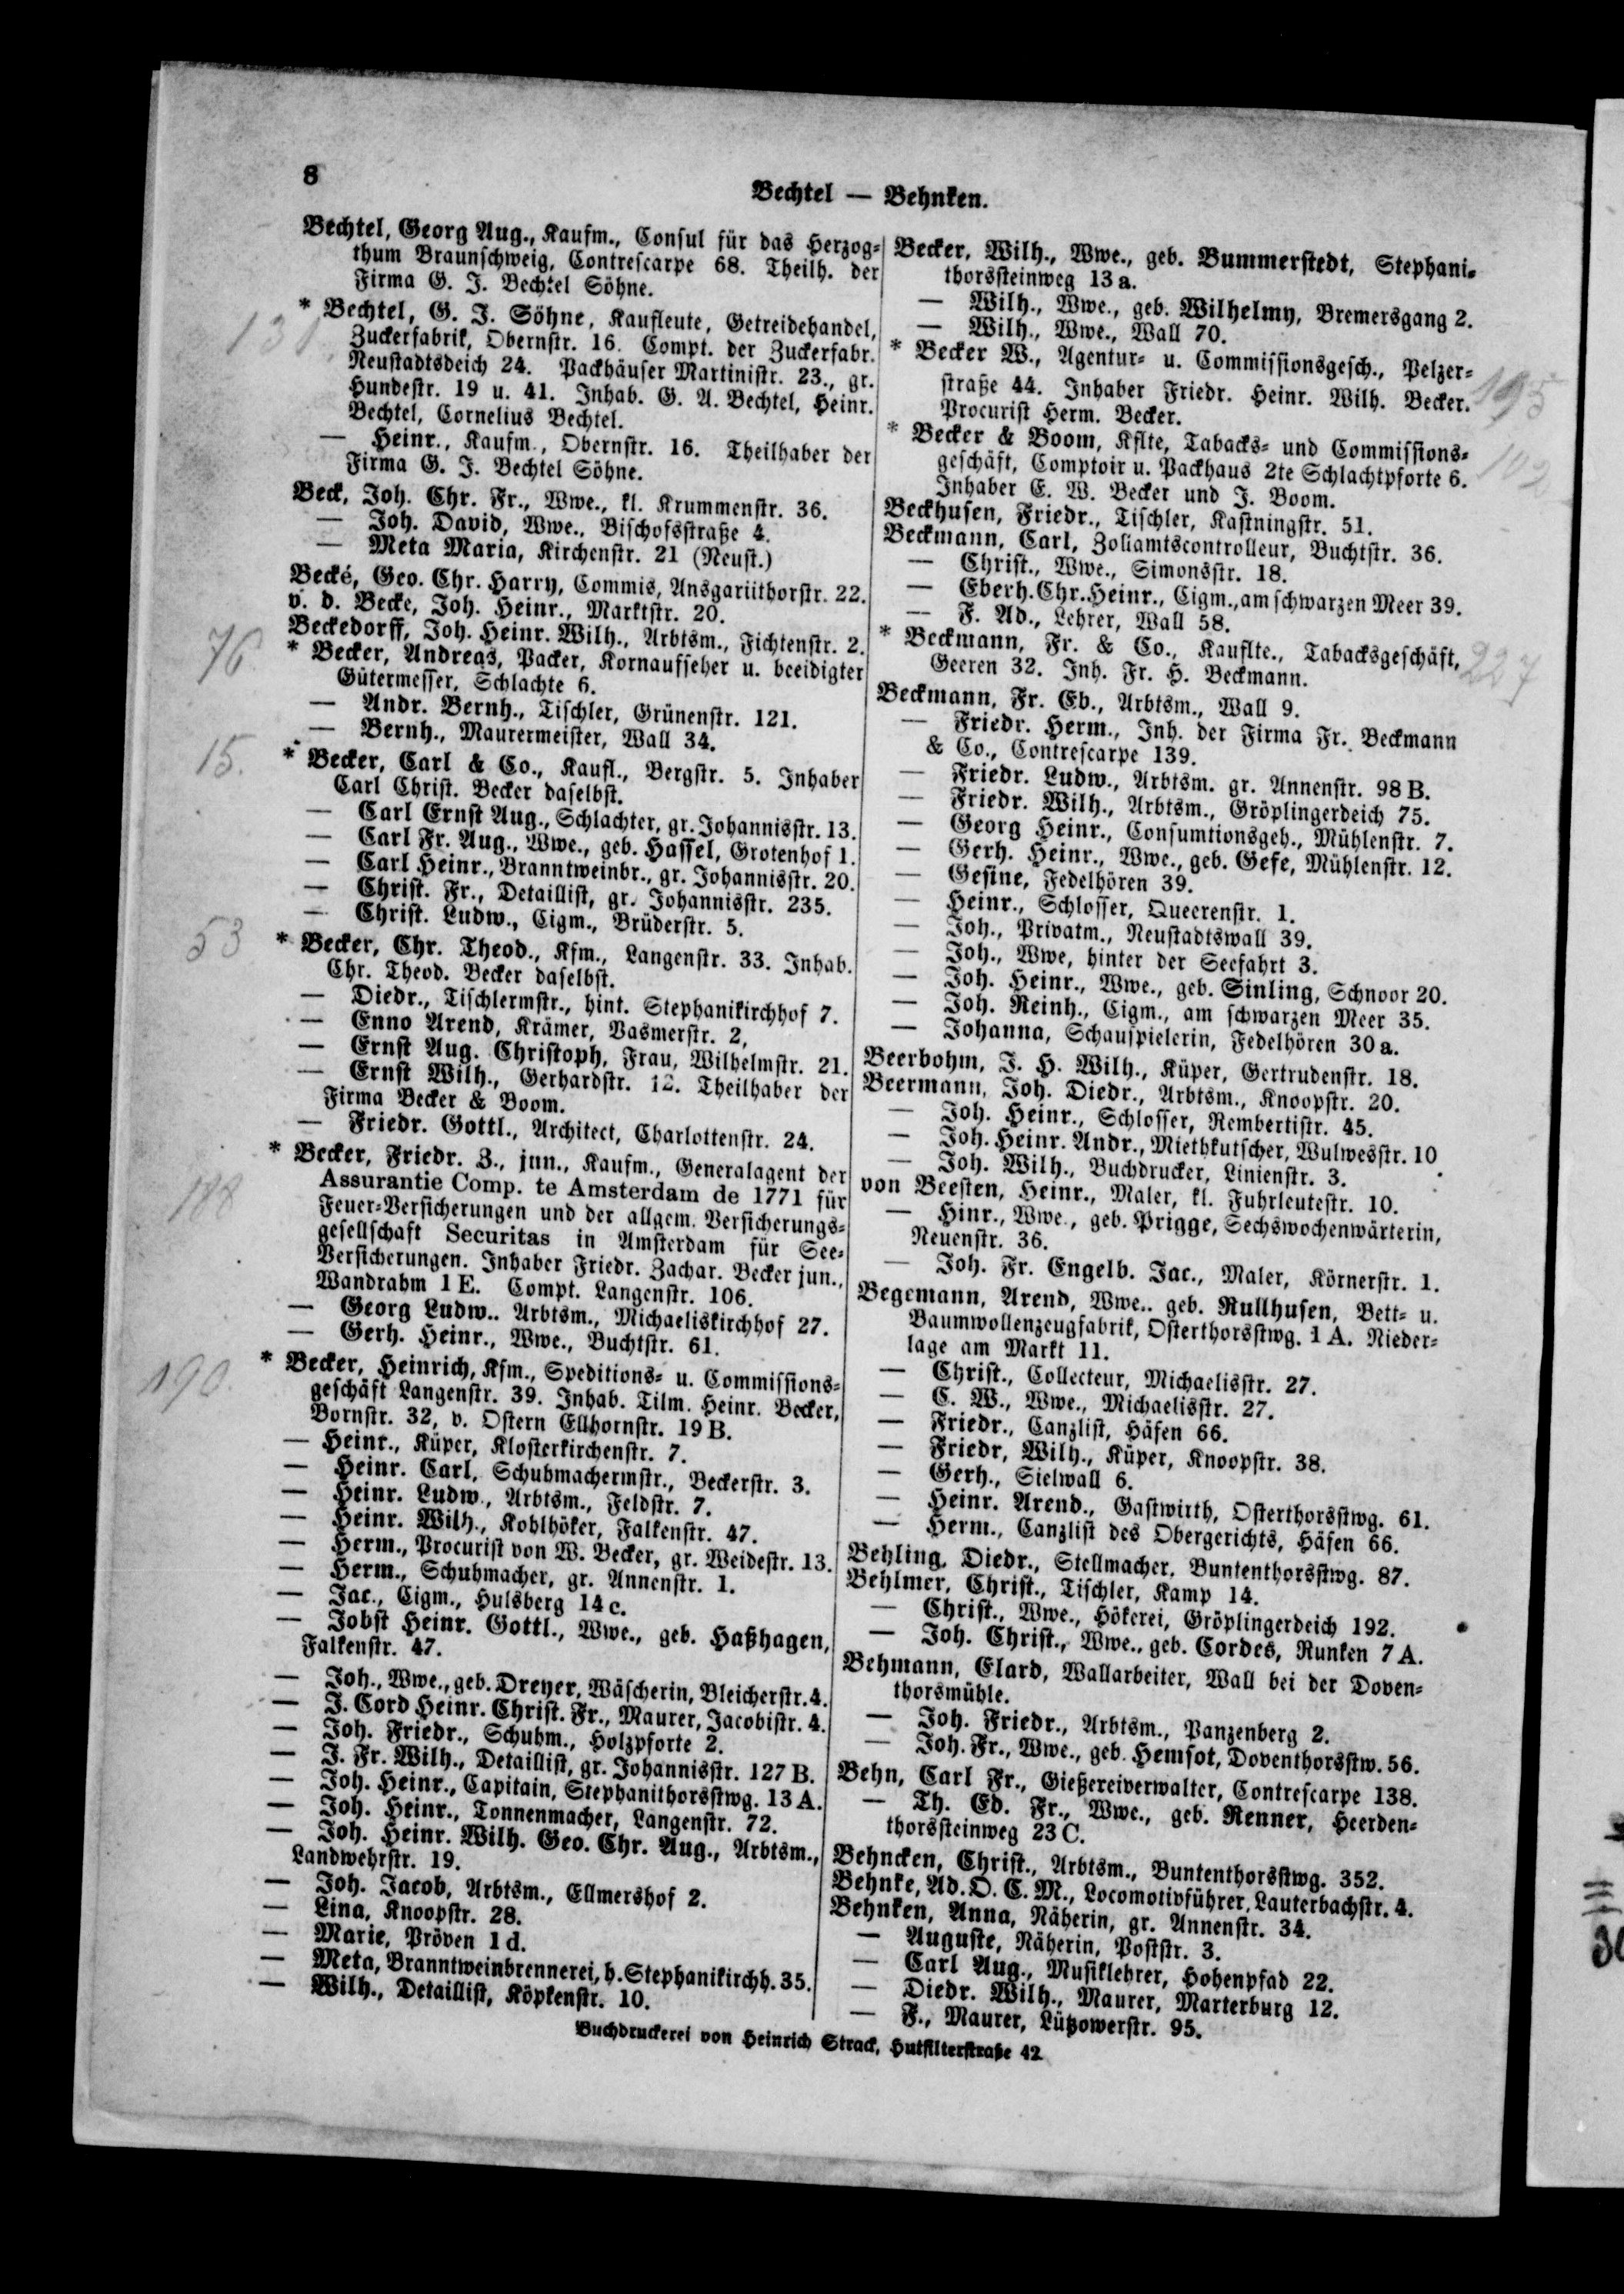 8
Bechtel — Behnken.
Bechtel, Georg Aug., Kaufm., Consul für das Herzog-
thum Braunschweig, Contrescarpe 68. Theilh. der
Firma G. J. Bechtel Söhne.
* Bechtel, G. J. Söhne, Kaufleute, Getreidehandel,
Zuckerfabrik, Obernstr. 16. Compt. der Zuckerfabr.
Neustadtsdeich 24. Packhäuser Martinistr. 23., gr.
Hundestr. 19 u. 41. Inhab. G. A. Bechtel, Heinr.
Bechtel, Cornelius Bechtel.
— Heinr., Kaufm., Obernstr. 16. Theilhaber der
Firma G. J. Bechtel Söhne.
Beck, Joh. Chr. Fr., Wwe., kl. Krummenstr. 36.
— Joh. David, Wwe., Bischofsstraße 4.
— Meta Maria, Kirchenstr. 21 (Neust.)
Becké, Geo. Chr. Harry, Commis, Ansgariithorstr. 22.
v. d. Becke, Joh. Heinr., Marktstr. 20.
Beckedorff, Joh. Heinr. Wilh., Arbtsm., Fichtenstr. 2.
76 * Becker, Andreas, Packer, Kornaufseher u. beeidigter
Gütermesser, Schlachte 6.
— Andr. Bernh., Tischler, Grünenstr. 121.
— Bernh., Maurermeister, Wall 34.
15. * Becker, Carl & Co., Kaufl., Bergstr. 5. Inhaber
Carl Christ. Becker daselbst.
— Carl Ernst Aug., Schlachter, gr. Johannisstr. 13.
— Carl Fr. Aug., Wwe., geb. Hassel, Grotenhof 1.
— Carl Heinr., Branntweinbr., gr. Johannisstr. 20.
— Christ. Fr., Detaillist, gr. Johannisstr. 235.
— Christ. Ludw., Cigm., Brüderstr. 5.
53 * Becker, Chr. Theod., Kfm., Langenstr. 33. Inhab.
Chr. Theod. Becker daselbst.
— Diedr., Tischlermstr., hint. Stephanikirchhof 7.
— Enno Arend, Krämer, Vasmerstr. 2,
— Ernst Aug. Christoph, Frau, Wilhelmstr. 21.
— Ernst Wilh., Gerhardstr. 12. Theilhaber der
Firma Becker & Boom.
— Friedr. Gottl., Architect, Charlottenstr. 24.
* Becker, Friedr. Z., jun., Kaufm., Generalagent der
188 Assurantie Comp. te Amsterdam de 1771 für
Feuer-Versicherungen und der allgem. Versicherungs-
gesellschaft Securitas in Amsterdam für See-
Versicherungen. Inhaber Friedr. Zachar. Becker jun.,
Wandrahm 1 E. Compt. Langenstr. 106.
— Georg Ludw.. Arbtsm., Michaeliskirchhof 27.
— Gerh. Heinr., Wwe., Buchtstr. 61.
190. * Becker, Heinrich, Kfm., Speditions- u. Commissions-
geschäft Langenstr. 39. Inhab. Tilm. Heinr. Becker,
Bornstr. 32, v. Ostern Ellhornstr. 19 B.
— Heinr., Küper, Klosterkirchenstr. 7.
— Heinr. Carl, Schuhmachermstr., Beckerstr. 3.
— Heinr. Ludw., Arbtsm., Feldstr. 7.
— Heinr. Wilh., Kohlhöker, Falkenstr. 47.
— Herm., Procurist von W. Becker, gr. Weidestr. 13.
— Herm., Schuhmacher, gr. Annenstr. 1.
— Jac., Cigm., Hulsberg 14 c.
— Jobst Heinr. Gottl., Wwe., geb. Haßhagen,
Falkenstr. 47.
— Joh., Wwe., geb. Dreyer, Wäscherin, Bleicherstr. 4.
— J. Cord Heinr. Christ. Fr., Maurer, Jacobistr. 4.
— Joh. Friedr., Schuhm., Holzpforte 2.
— J. Fr. Wilh., Detaillist, gr. Johannisstr. 127 B.
— Joh. Heinr., Capitain, Stephanithorsstwg. 13 A.
— Joh. Heinr., Tonnenmacher, Langenstr. 72.
— Joh. Heinr. Wilh. Geo. Chr. Aug., Arbtsm.,
Landwehrstr. 19.
— Joh. Jacob, Arbtsm., Ellmershof 2.
— Lina, Knoopstr. 28.
— Marie, Pröven 1 d.
— Meta, Branntweinbrennerei, h. Stephanikirchh. 35.
— Wilh., Detaillist, Köpkenstr. 10.
Becker, Wilh., Wwe., geb. Bummerstedt, Stephani-
thorssteinweg 13 a.
— Wilh., Wwe., geb. Wilhelmy, Bremersgang 2.
— Wilh., Wwe., Wall 70.
* Becker W., Agentur- u. Commissionsgesch., Pelzer-
straße 44. Inhaber Friedr. Heinr. Wilh. Becker. 195
Procurist Herm. Becker.
* Becker & Boom, Kflte, Tabacks- und Commissions-
geschäft, Comptoir u. Packhaus 2te Schlachtpforte 6. 102
Inhaber E. W. Becker und J. Boom.
Beckhusen, Friedr., Tischler, Kastningstr. 51.
Beckmann, Carl, Zollamtscontrolleur, Buchtstr. 36.
— Christ., Wwe., Simonsstr. 18.
— Eberh. Chr. Heinr., Cigm., am schwarzen Meer 39.
— F. Ad., Lehrer, Wall 58.
* Beckmann, Fr. & Co., Kauflte., Tabacksgeschäft,
Geeren 32. Inh. Fr. H. Beckmann. 227
Beckmann, Fr. Eb., Arbtsm., Wall 9.
— Friedr. Herm., Inh. der Firma Fr. Beckmann
& Co., Contrescarpe 139.
— Friedr. Ludw., Arbtsm. gr. Annenstr. 98 B.
— Friedr. Wilh., Arbtsm., Gröplingerdeich 75.
— Georg Heinr., Consumtionsgeh., Mühlenstr. 7.
— Gerh. Heinr., Wwe., geb. Gefe, Mühlenstr. 12.
— Gesine, Fedelhören 39.
— Heinr., Schlosser, Queerenstr. 1.
— Joh., Privatm., Neustadtswall 39.
— Joh., Wwe, hinter der Seefahrt 3.
— Joh. Heinr., Wwe., geb. Sinling, Schnoor 20.
— Joh. Reinh., Cigm., am schwarzen Meer 35.
— Johanna, Schauspielerin, Fedelhören 30 a.
Beerbohm, J. H. Wilh., Küper, Gertrudenstr. 18.
Beermann, Joh. Diedr., Arbtsm., Knoopstr. 20.
— Joh. Heinr., Schlosser, Rembertistr. 45.
— Joh. Heinr. Andr., Miethkutscher, Wulwesstr. 10
— Joh. Wilh., Buchdrucker, Linienstr. 3.
von Beesten, Heinr., Maler, kl. Fuhrleutestr. 10.
— Hinr., Wwe., geb. Prigge, Sechswochenwärterin,
Neuenstr. 36.
— Joh. Fr. Engelb. Jac., Maler, Körnerstr. 1.
Begemann, Arend, Wwe.. geb. Rullhusen, Bett- u.
Baumwollenzeugfabrik, Osterthorsstwg. 1 A. Nieder-
lage am Markt 11.
— Christ., Collecteur, Michaelisstr. 27.
— C. W., Wwe., Michaelisstr. 27.
— Friedr., Canzlist, Häfen 66.
— Friedr, Wilh., Küper, Knoopstr. 38.
— Gerh., Sielwall 6.
— Heinr. Arend., Gastwirth, Osterthorsstwg. 61.
— Herm., Canzlist des Obergerichts, Häfen 66.
Behling, Diedr., Stellmacher, Buntenthorsstwg. 87.
Behlmer, Christ., Tischler, Kamp 14.
— Christ., Wwe., Hökerei, Gröplingerdeich 192.
— Joh. Christ., Wwe., geb. Cordes, Runken 7 A.
Behmann, Elard, Wallarbeiter, Wall bei der Doven-
thorsmühle.
— Joh. Friedr., Arbtsm., Panzenberg 2.
— Joh. Fr., Wwe., geb. Hemsot, Doventhorsstw. 56.
Behn, Carl Fr., Gießereiverwalter, Contrescarpe 138.
— Th. Ed. Fr., Wwe., geb. Renner, Heerden-
thorssteinweg 23 C.
Behncken, Christ., Arbtsm., Buntenthorsstwg. 352.
Behnke, Ad. O. C. M., Locomotivführer, Lauterbachstr. 4.
Behnken, Anna, Näherin, gr. Annenstr. 34.
— Auguste, Näherin, Poststr. 3.
— Carl Aug., Musiklehrer, Hohenpfad 22.
— Diedr. Wilh., Maurer, Marterburg 12.
— F., Maurer, Lützowerstr. 95.
Buchdruckerei von Heinrich Strack, Hutfilterstraße 42